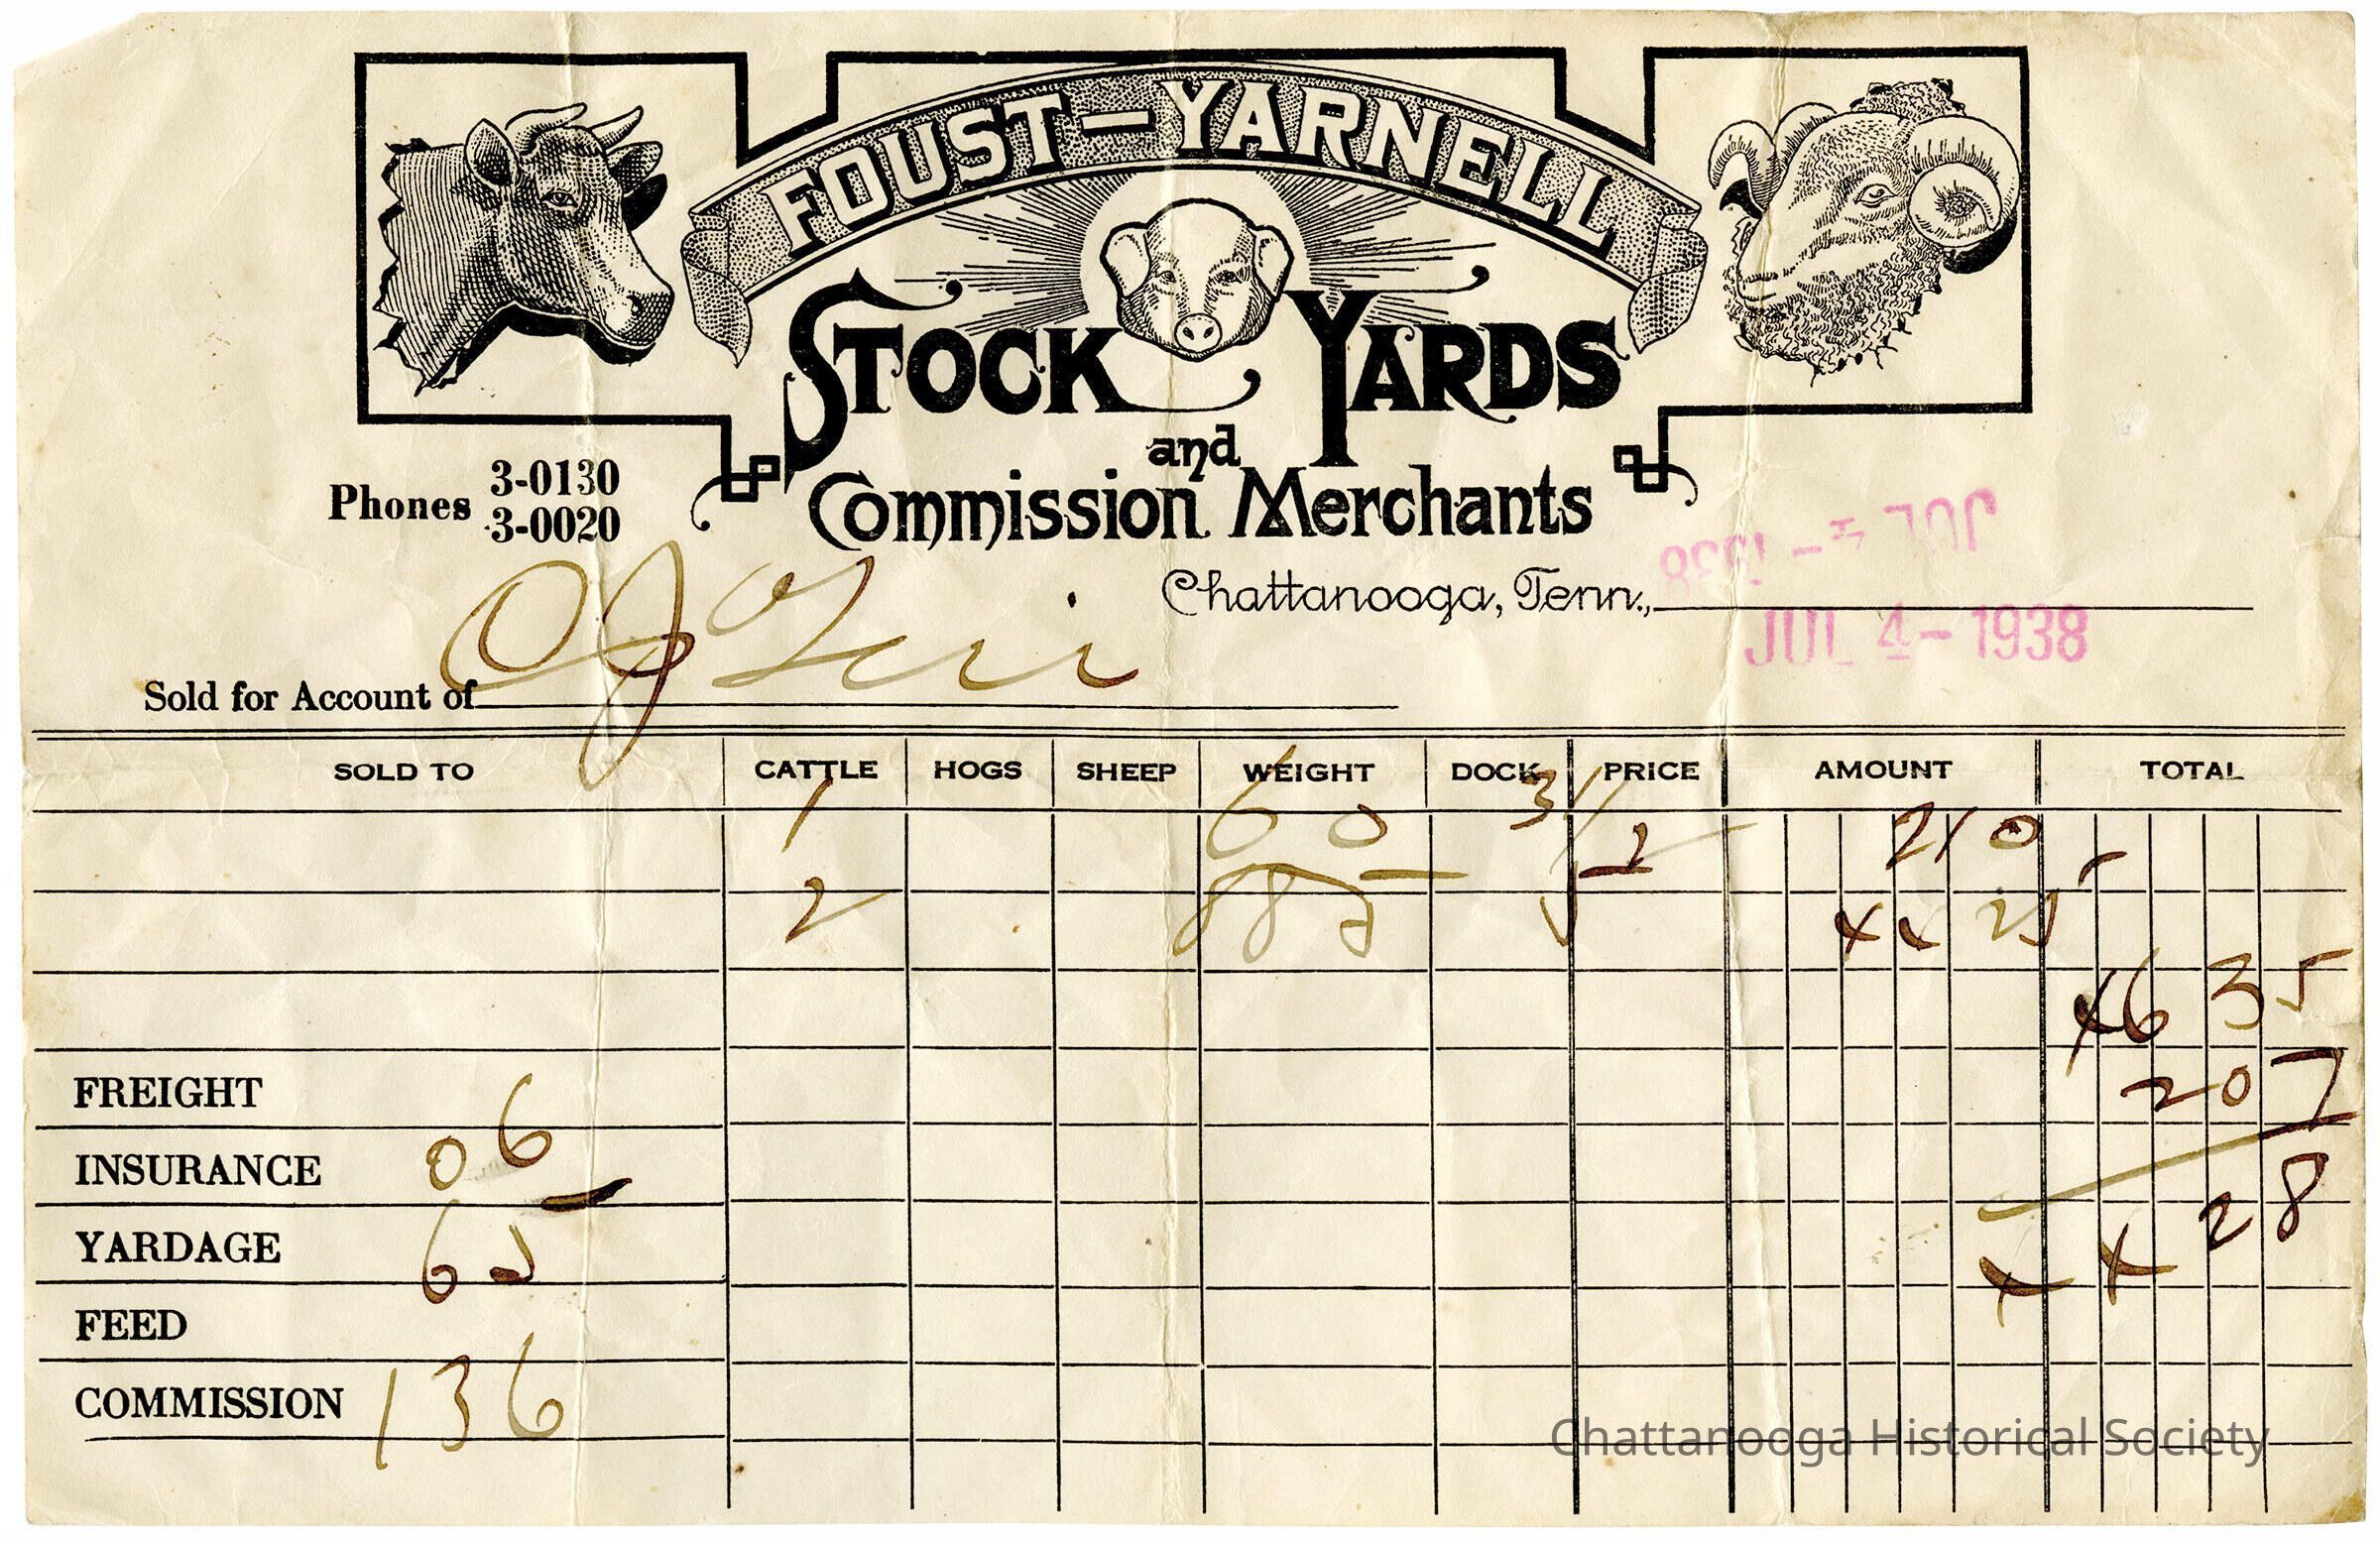 FOUST—YARNELL
STOCK YARDS
and
Commission Merchants
Phones 3-0130
3-0020
JUL 4-1938
Chattanooga, Tenn.,
JUL 4-1938
Sold for Account of O J
SOLD TO CATTLE HOGS SHEEP WEIGHT DOCK PRICE AMOUNT TOTAL
1 60 3 1/2 210
2 885 5 44 25
46 35
FREIGHT 2 07
INSURANCE 06
44 28
YARDAGE 65
FEED
COMMISSION 1 36
Chattanooga Historical Society